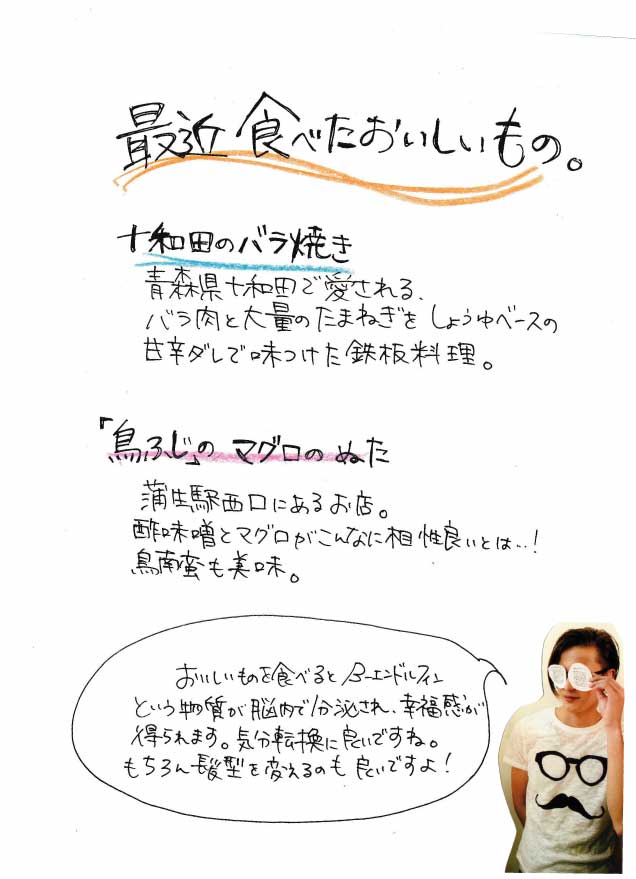 最近食べたおいしいもの。
十和田のバラ焼き
青森県十和田で愛される、
バラ肉と大量のたまねぎをしょうゆベースの
甘辛ダレで味つけた鉄板料理。
「鳥ふじ」のマグロのぬた
蒲生駅西口にあるお店。
酢味噌とマグロがこんなに相性良いとは…!
鳥南蛮も美味。
おいしいものを食べるとβ-エンドルフィン
という物質が脳内で分泌され、幸福感が
得られます。気分転換に良いですね。
もちろん髪型を変えるのも良いですよ!